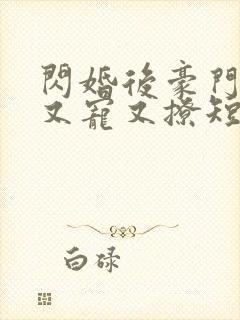 閃婚後豪門
又寵又撩短
白碌